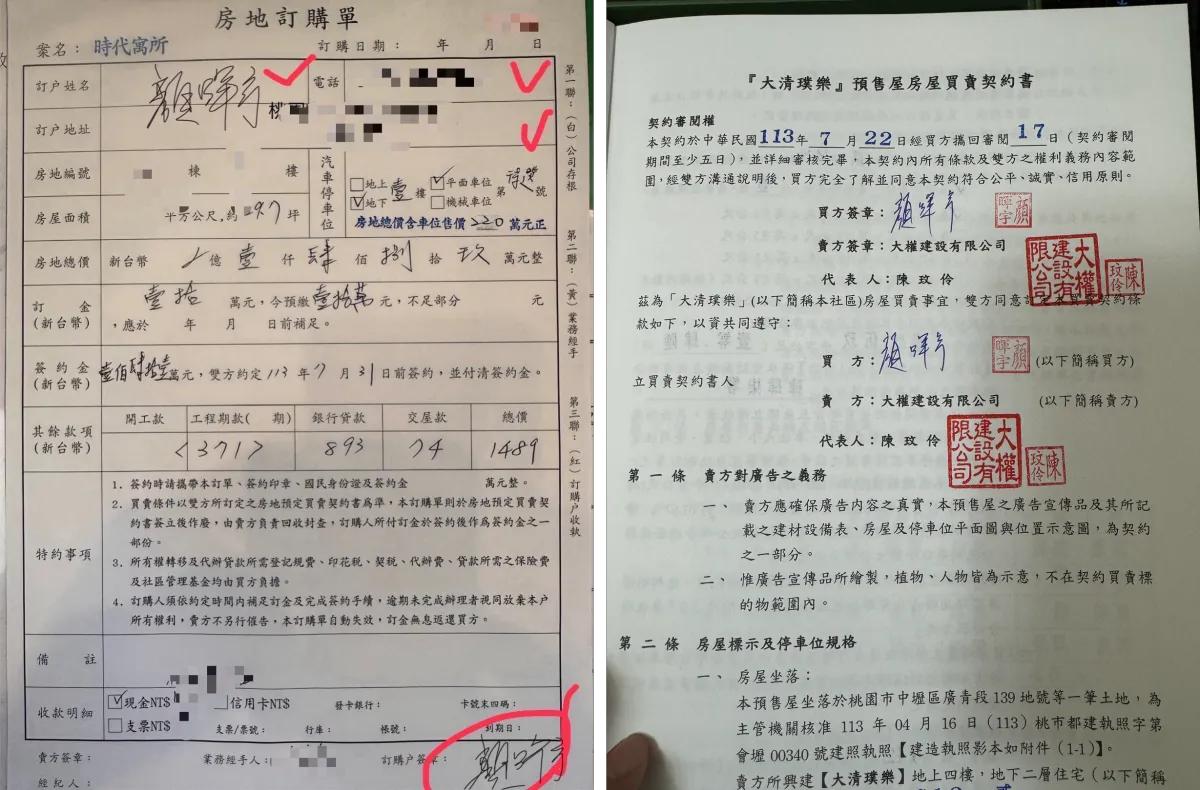 房地訂購單
案名：時代寓所
訂購日期： 年 月 日
訂戶姓名
顏暐宇
電話
訂戶地址
房地編號 棟 樓
汽車停車位
地上 壹 樓 平面車位 第 號
地下 機械車位
房地總價含車位售價 220 萬元正
房屋面積 平方公尺，約 29.7 坪
房地總價 新台幣 億 壹 仟 肆 佰 捌 拾 玖 萬元整
訂金
(新台幣)
壹拾 萬元，今預繳 壹拾萬 元，不足部分 元
，應於 年 月 日前補足。
簽約金
(新台幣)
壹佰肆拾壹萬元，雙方約定 113 年 7 月 31 日前簽約，並付清簽約金。
其餘款項
(新台幣)
開工款 工程期款( 期) 銀行貸款 交屋款 總價
<371> 893 74 1489
特約事項
1．簽約時請攜帶本訂單、簽約印章、國民身份證及簽約金 萬元整。
2．買賣條件以雙方所訂定之房地預定買賣契約書為準，本訂購單則於房地預定買賣契
約書簽立後作廢，由賣方負責回收封查，訂購人所付訂金於簽約後作為簽約金之一
部份。
3．所有權轉移及代辦貸款所需登記規費、印花稅、契稅、代辦費、貸款所需之保險費
及社區管理基金均由買方負擔。
4．訂購人須依約定時間內補足訂金及完成簽約手續，逾期未完成辦理者視同放棄本戶
所有權利，賣方不另行催告，本訂購單自動失效，訂金無息返還買方。
備註
收款明細
現金NT$ 信用卡NT$ 發卡銀行： 卡號末四碼：
支票NT$ 支票/票號： 行庫： 帳號： 到期日：
賣方簽章： 業務經手人： 訂購戶簽章：
顏暐宇
經紀人：
第一聯：(白)公司存根
第二聯：(黃)業務經手
第三聯：(紅)訂購戶收執
『大清璞樂』預售屋房屋買賣契約書
契約審閱權
本契約於中華民國113年 7 月 22 日經買方攜回審閱 17 日（契約審閱
期間至少五日），並詳細審核完畢，本契約內所有條款及雙方之權利義務內容範
圍，經雙方溝通說明後，買方完全了解並同意本契約符合公平、誠實、信用原則。
買方簽章：顏暐宇
顏暐宇
賣方簽章：大權建設有限公司
代表人：陳玟伶
大權建設有限公司
陳玟伶
茲為「大清璞樂」(以下簡稱本社區)房屋買賣事宜，雙方同意訂定本買賣契約條
款如下，以資共同遵守：
買 方：顏暐宇 (以下簡稱買方)
顏暐宇
立買賣契約書人
賣 方：大權建設有限公司 (以下簡稱賣方)
代表人：陳玟伶
大權建設有限公司
陳玟伶
第一條 賣方對廣告之義務
一、賣方應確保廣告內容之真實，本預售屋之廣告宣傳品及其所記
載之建材設備表、房屋及停車位平面圖與位置示意圖，為契約
之一部分。
二、惟廣告宣傳品所繪製，植物、人物皆為示意，不在契約買賣標
的物範圍內。
第二條 房屋標示及停車位規格
一、房屋坐落：
本預售屋坐落於桃園市中壢區廣青段139地號等一筆土地，為
主管機關核准 113 年 04 月 16 日（113）桃市都建執照字第
會壢 00340 號建照執照【建造執照影本如附件（1-1）】。
賣方所興建【大清璞樂】地上四樓，地下二層住宅（以下簡稱